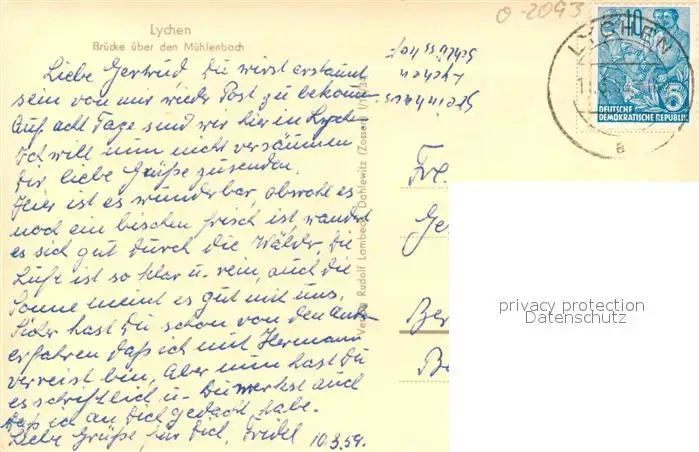 Lychen
Brücke über den Mühlenbach
Liebe Gertrud, Du wirst erstaunt
sein von mir wieder Post zu bekom
Auf acht Tage sind wir hier in Lychen
Ich will nun nicht versäumen
Dir liebe Grüße zusenden.
Hier ist es wunderbar, obwohl es
noch ein bischen frisch ist, wandert
es sich gut durch die Wälder, die
Luft ist so klar u. rein, auch die
Sonne meint es gut mit uns.
Sicher hast Du schon von den
erfahren daß ich mit Hermann
verreist bin, Aber nun hast Du
es schriftlich u. Du merkst auch
daß ich an Dich gedacht habe.
Liebe Grüße für Dich, Friedel 10.3.59.
Verlag Rudolf Lambeck, Dahlewitz (Zossen)
Lychen
0-2093
LYCHEN
a
10
5
DEUTSCHE
DEMOKRATISCHE REPUBLIK
Ge
Ber
privacy protection
Datenschutz